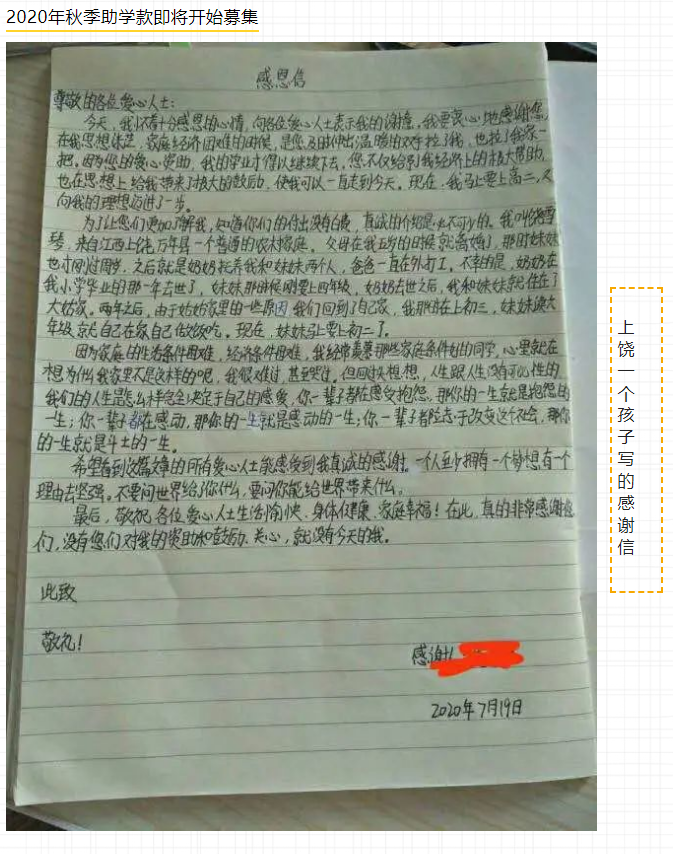 2020年秋季助学款即将开始募集
感恩信
尊敬的各位爱心人士:
今天,我怀着十分感恩的心情,向各位爱心人士表示我的谢意。我要衷心地感谢您,
在我思想迷茫,家庭经济困难的时候,是您及时伸出温暖的双手拉了我,也拉了我家一
把。因为您的爱心资助,我的学业才得以继续下去。您不仅给予我经济上的极大帮助,
也在思想上给我带来了极大的鼓励,使我可以一直走到今天。现在,我马上要上高二,又
向我的理想迈进了一步。
为了让您们更加了解我,知道你们的付出没有白费,真诚的介绍是必不可少的。我叫
琴,来自江西上饶万年县一个普通的农村家庭。父母在我五岁的时候就离婚了,那时妹妹
也才刚过周岁。之后就是奶奶抚养我和妹妹两个人,爸爸一直在外打工。不幸的是,奶奶在
我小学毕业的那一年去世了,妹妹那时候刚要上四年级。奶奶去世之后,我和妹妹就住在了
大姑家。两年之后,由于姑姑家里的一些原因,我们回到了自己家,我那时在上初三,妹妹读六
年级,就自己在家自己做饭吃。现在,妹妹马上要上初二了。
因为家庭的生活条件困难,经济条件困难,我经常羡慕那些家庭条件好的同学,心里就在
想为什么我家里不是这样的呢,我很难过,甚至哭泣。但回头想想,人生跟人生没有可比性的,
我们的人生是怎么样完全决定于自己的感受,你一辈子都在感受抱怨,那你的一生就是抱怨的
一生;你一辈子都在感动,那你的一生就是感动的一生;你一辈子都立志于改变这个社会,那你
的一生就是斗士的一生。
希望看到这篇文章的所有爱心人士能感受到我真诚的感谢。一个人至少拥有一个梦想,有一个
理由去坚强。不要问世界给了你什么,要问你能给世界带来什么。
最后,敬祝各位爱心人士生活愉快、身体健康、家庭幸福!在此,真的非常感谢您
们,没有您们对我的资助和鼓励、关心,就没有今天的我。
此致
敬礼!
感谢人
2020年7月19日
上饶一个孩子写的感谢信